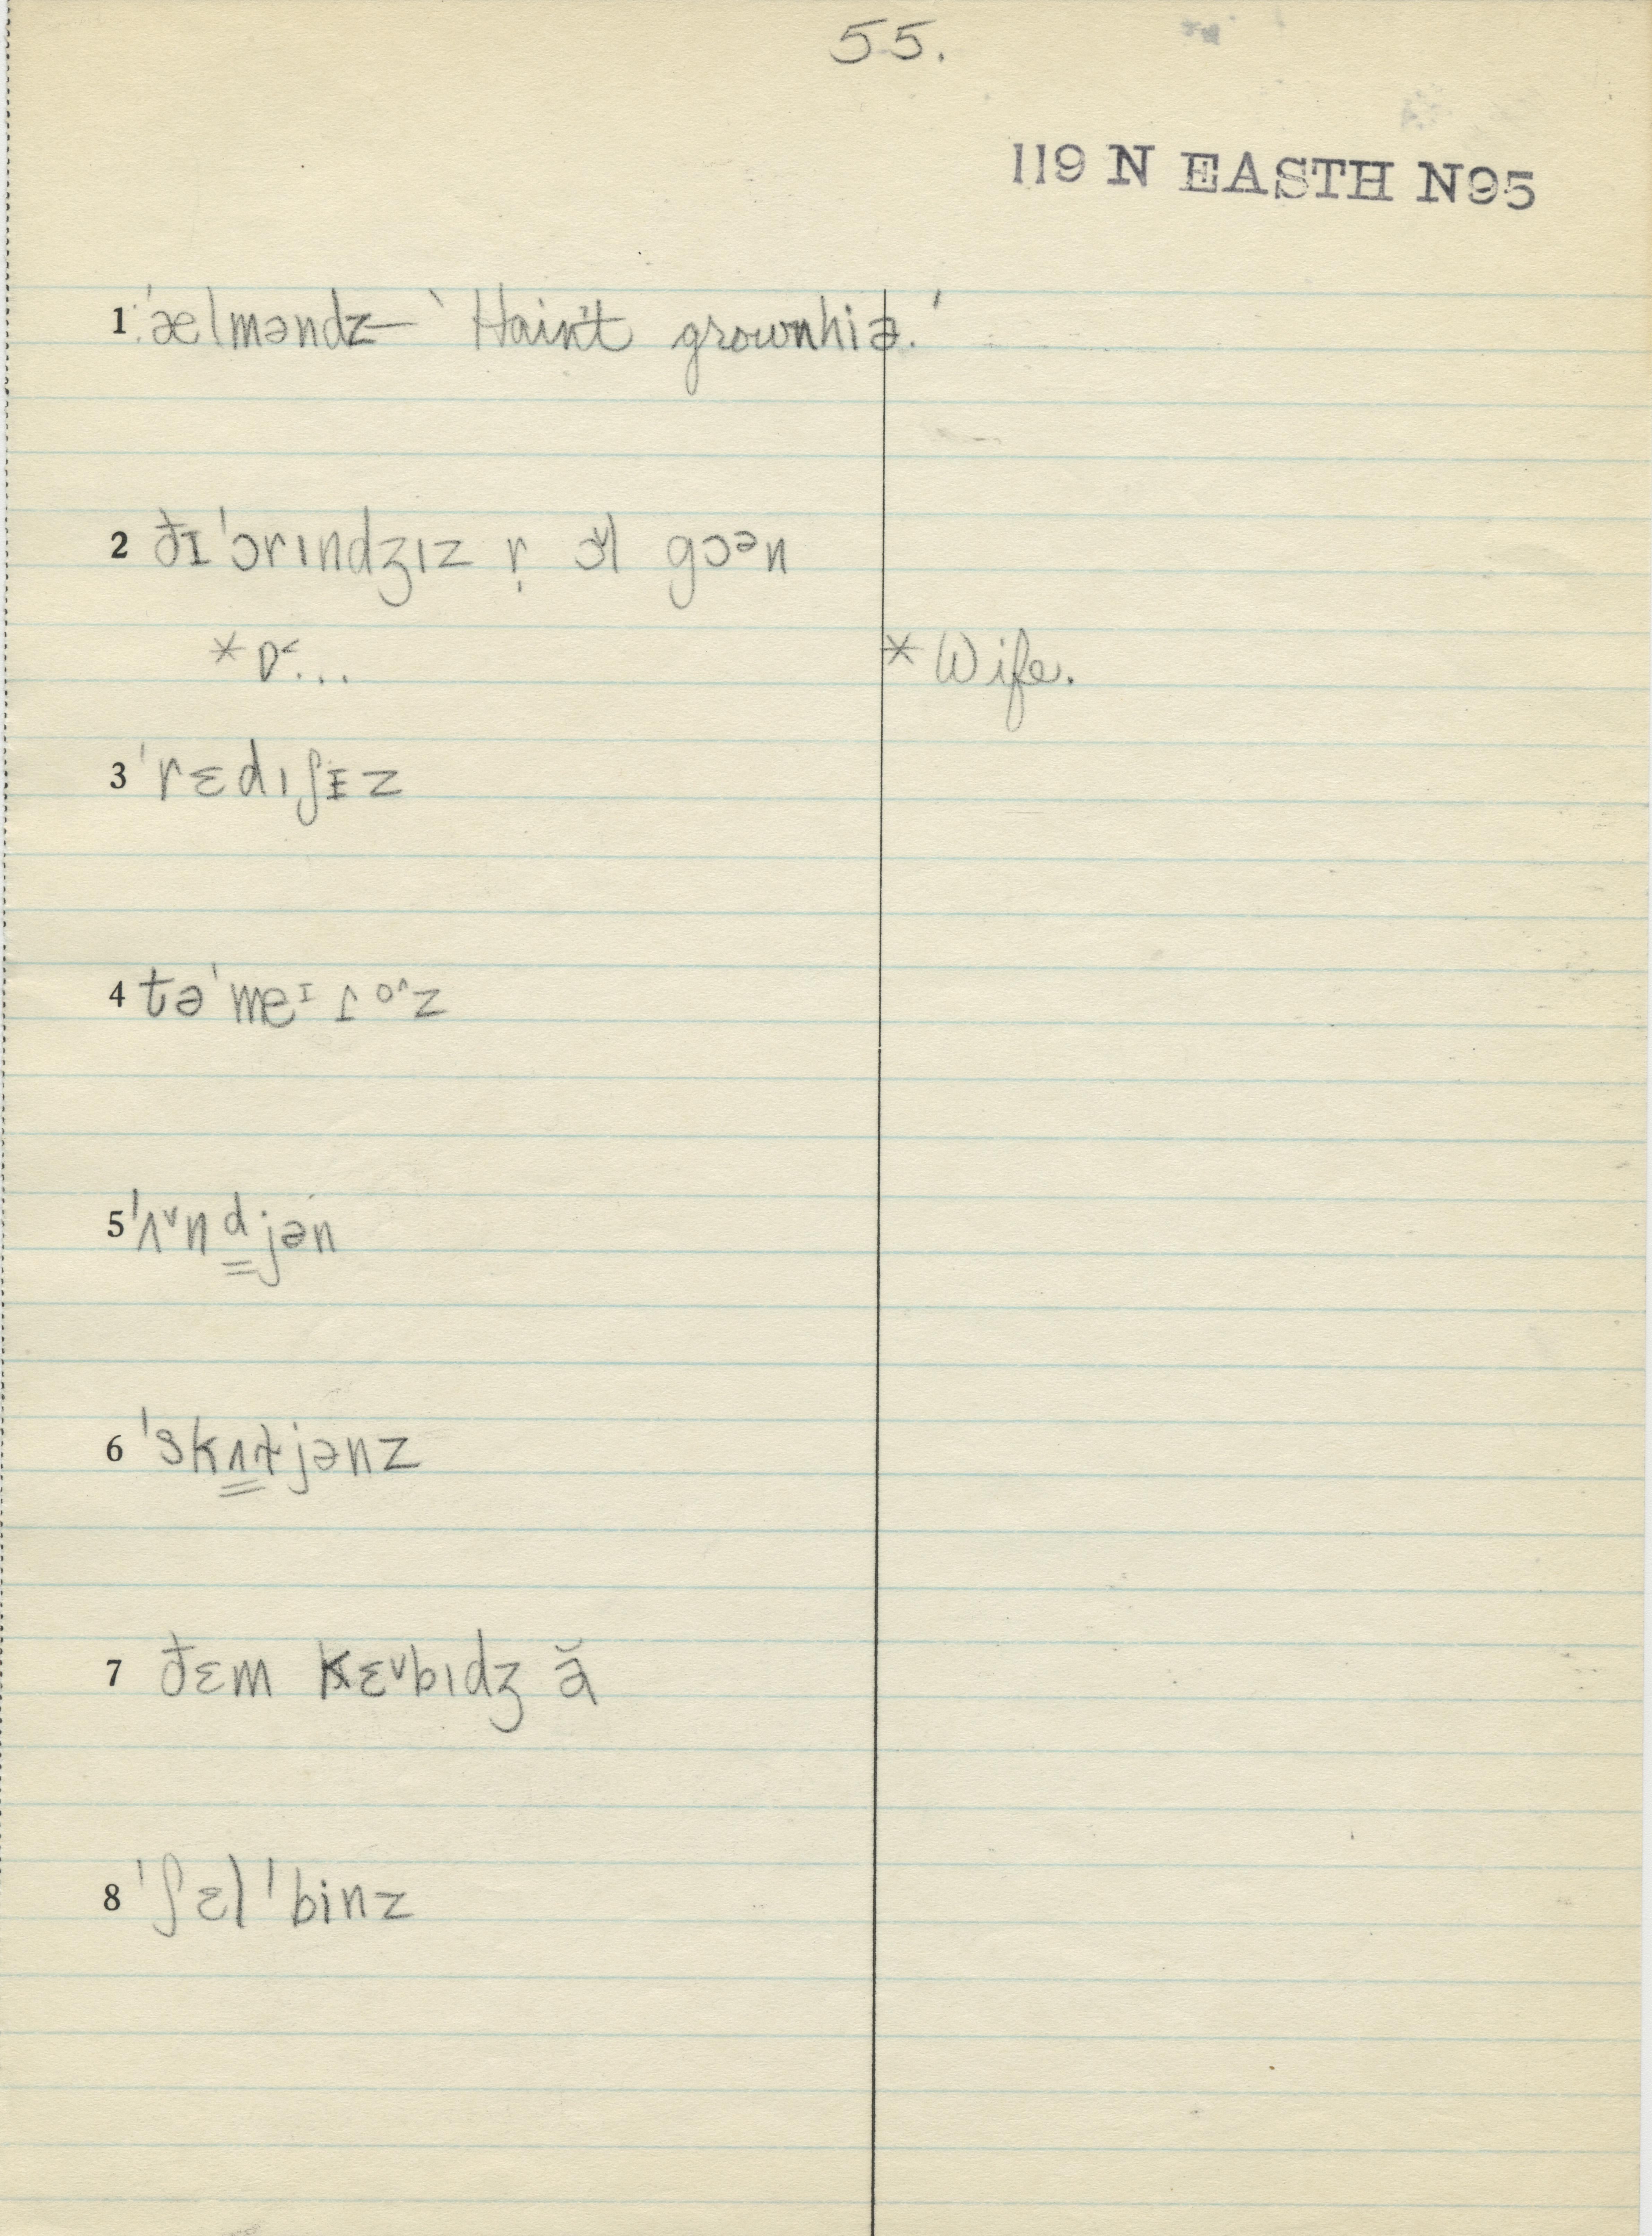 55.
119 N EASTH N95
1 ˈælməndz – ‘Hain't grownhiə.’
2 ðɪ ˈɔrɪndʒɪz r̩ ɔ̌l gɔᵊn
*ɒ˂... *Wife.
3 ˈrɛdɪʃɪz
4 təˈmeᶦɾoˆz
5 ˈʌˇndjən
6 ˈskʌɬjənz
7 ðɛm kɛˇbɪdʒ ă
8 ˈʃɛlˈbinz